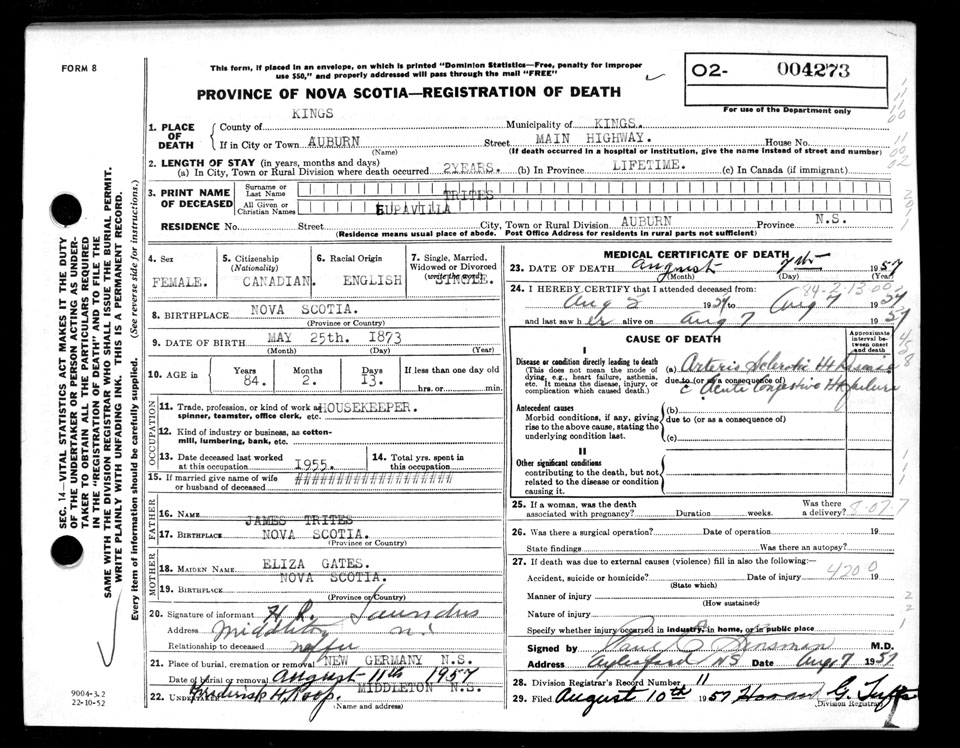 FORM 8
This form, if placed in an envelope, on which is printed "Dominion Statistics—Free, penalty for improper
use $50," and properly addressed will pass through the mail "FREE"
O2- 004273
For use of the Department only
PROVINCE OF NOVA SCOTIA—REGISTRATION OF DEATH
1. PLACE OF DEATH
County of KINGS Municipality of KINGS.
If in City or Town AUBURN Street MAIN HIGHWAY. House No.
(Name) (If death occurred in a hospital or institution, give the name instead of street and number)
2. LENGTH OF STAY (in years, months and days)
(a) In City, Town or Rural Division where death occurred 2YEARS. (b) In Province LIFETIME. (c) In Canada (if immigrant)
3. PRINT NAME OF DECEASED
Surname or Last Name TRITES
All Given or Christian Names EUPAVILLA
RESIDENCE No. Street City, Town or Rural Division AUBURN Province N.S.
(Residence means usual place of abode. Post Office Address for residents in rural parts not sufficient)
4. Sex FEMALE.
5. Citizenship (Nationality) CANADIAN.
6. Racial Origin ENGLISH
7. Single, Married, Widowed or Divorced (write the word) SINGLE.
8. BIRTHPLACE NOVA SCOTIA.
(Province or Country)
9. DATE OF BIRTH MAY 25th. 1873
(Month) (Day) (Year)
10. AGE in Years 84. Months 2. Days 13. If less than one day old hrs. or min.
OCCUPATION
11. Trade, profession, or kind of work as spinner, teamster, office clerk, etc. HOUSEKEEPER.
12. Kind of industry or business, as cotton-mill, lumbering, bank, etc.
13. Date deceased last worked at this occupation 1955.
14. Total yrs. spent in this occupation
15. If married give name of wife or husband of deceased ####################
FATHER
16. NAME JAMES TRITES
17. BIRTHPLACE NOVA SCOTIA.
(Province or Country)
MOTHER
18. MAIDEN NAME ELIZA GATES.
19. BIRTHPLACE NOVA SCOTIA.
(Province or Country)
20. Signature of informant H. R. Saunders
Address Middleton N.S
Relationship to deceased
21. Place of burial, cremation or removal NEW GERMANY N.S.
Date of burial or removal August 11th 1957
22. UNDERTAKER Frederick H Roop. MIDDLETON N.S.
(Name and address)
9004-3.2
22-10-52
MEDICAL CERTIFICATE OF DEATH
23. DATE OF DEATH August 7th 1957
(Month) (Day) (Year)
84-2-13 00
24. I HEREBY CERTIFY that I attended deceased from:
Aug 5 1957 to Aug 7 1957
and last saw her alive on Aug 7 1957
CAUSE OF DEATH
Approximate interval between onset and death
I
Disease or condition directly leading to death
(This does not mean the mode of dying, e.g., heart failure, asthenia, etc. It means the disease, injury, or complication which caused death.)
(a) Arterio Sclerotic Ht Disease
due to (or as a consequence of)
c Acute Congestive Ht failure
Antecedent causes
Morbid conditions, if any, giving rise to the above cause, stating the underlying condition last.
(b)
due to (or as a consequence of)
(c)
II
Other significant conditions
contributing to the death, but not related to the disease or condition causing it.
25. If a woman, was the death associated with pregnancy? Duration weeks. Was there a delivery?
8-07.7
26. Was there a surgical operation? Date of operation 19
State findings Was there an autopsy?
27. If death was due to external causes (violence) fill in also the following:—
Accident, suicide or homicide? Date of injury 19
4200
(State which)
Manner of injury
(How sustained)
Nature of injury
Specify whether injury occurred in industry, in home, or in public place
Signed by M.D.
Address Aylesford NS Date Aug 7 1957
28. Division Registrar's Record Number 11
29. Filed August 10th 1957
Division Registrar
SEC. 14—VITAL STATISTICS ACT MAKES IT THE DUTY
OF THE UNDERTAKER OR PERSON ACTING AS UNDER-
TAKER TO OBTAIN ALL THE PARTICULARS REQUIRED
IN THE "REGISTRATION OF DEATH" AND TO FILE THE
SAME WITH THE DIVISION REGISTRAR WHO SHALL ISSUE THE BURIAL PERMIT.
WRITE PLAINLY WITH UNFADING INK. THIS IS A PERMANENT RECORD.
Every item of information should be carefully supplied. (See reverse side for instructions.)